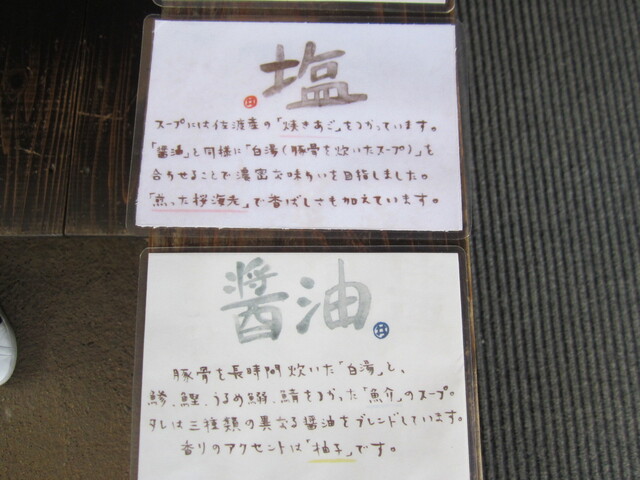 塩
スープには佐渡産の「焼きあご」をつかっています。
「醤油」と同様に「白湯(豚骨を炊いたスープ)」を
合わせることで濃密な味わいを目指しました。
「煎った桜海老」で香ばしさも加えています。
醤油
豚骨を長時間炊いた「白湯」と、
鯵、鰹、うるめ鰯、鯖をつかった「魚介」のスープ。
タレは三種類の異なる醤油をブレンドしています。
香りのアクセントは「柚子」です。